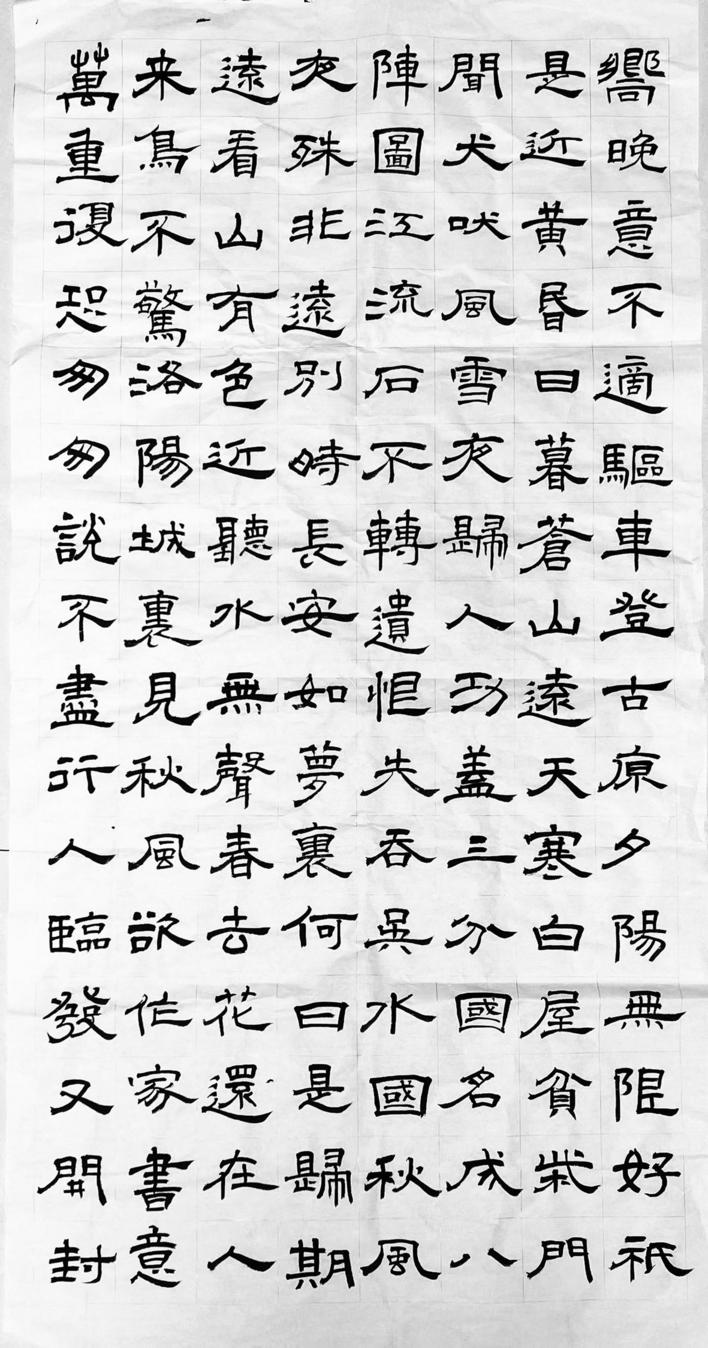 嚮晚意不適驅車登古原夕陽無限好祇
是近黃昏日暮蒼山遠天寒白屋貧柴門
聞犬吠風雪夜歸人功蓋三分國名成八
陣圖江流石不轉遺恨失吞吳水國秋風
夜殊非遠別時長安如夢裏何日是歸期
遠看山有色近聽水無聲春去花還在人
来鳥不驚洛陽城裏見秋風欲作家書意
萬重復恐匆匆說不盡行人臨發又開封